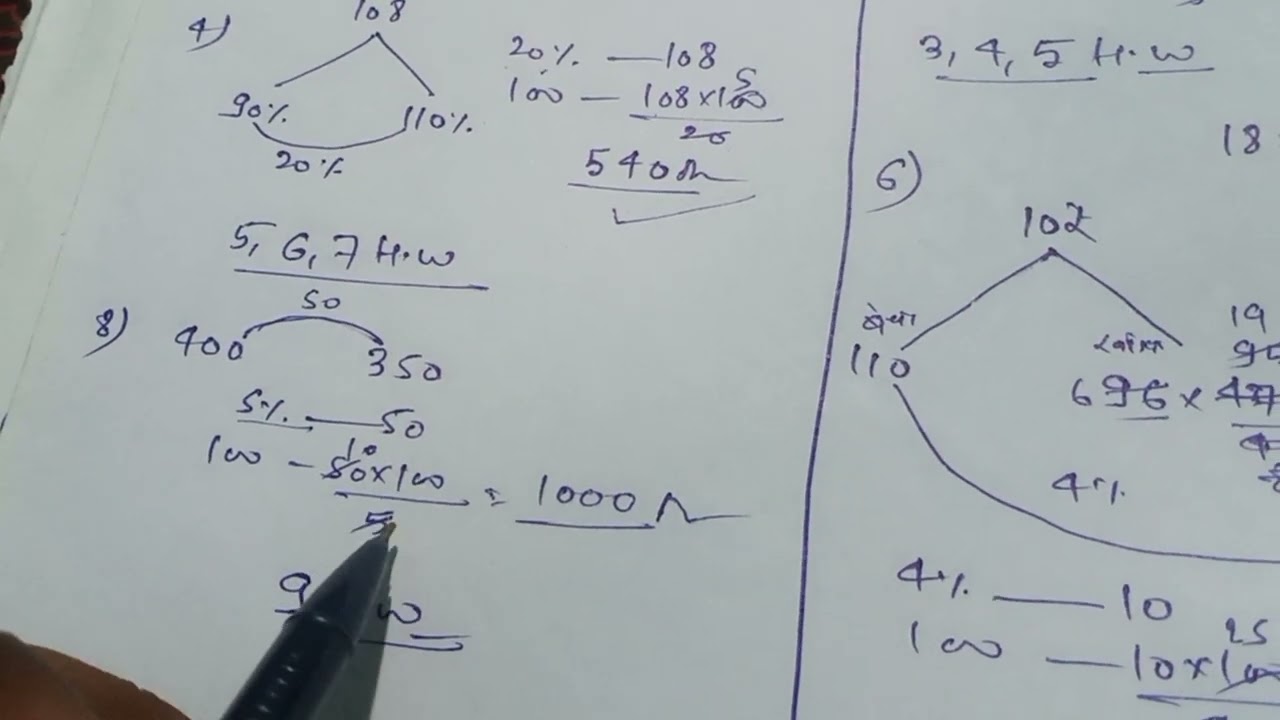 4)
108
90% 110%
20%
20% — 108
5
100 — 108×100
20
540
5, 6, 7 H.w
8)
50
400 350
5% — 50
10
100 — 50×100 = 1000
5
9 w
3, 4, 5 H.w
18
6)
102
बेचा
110
19
696 ×
4%
4% — 10
25
100 — 10×100